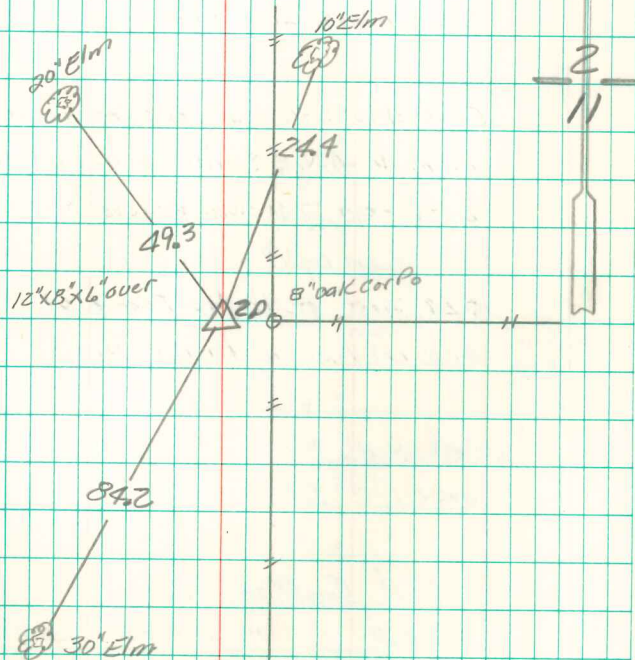 10"Elm
20"Elm
2
11
24.4
49.3
12"x8"x6"over
8"oak cor Po
2D
84.2
30"Elm